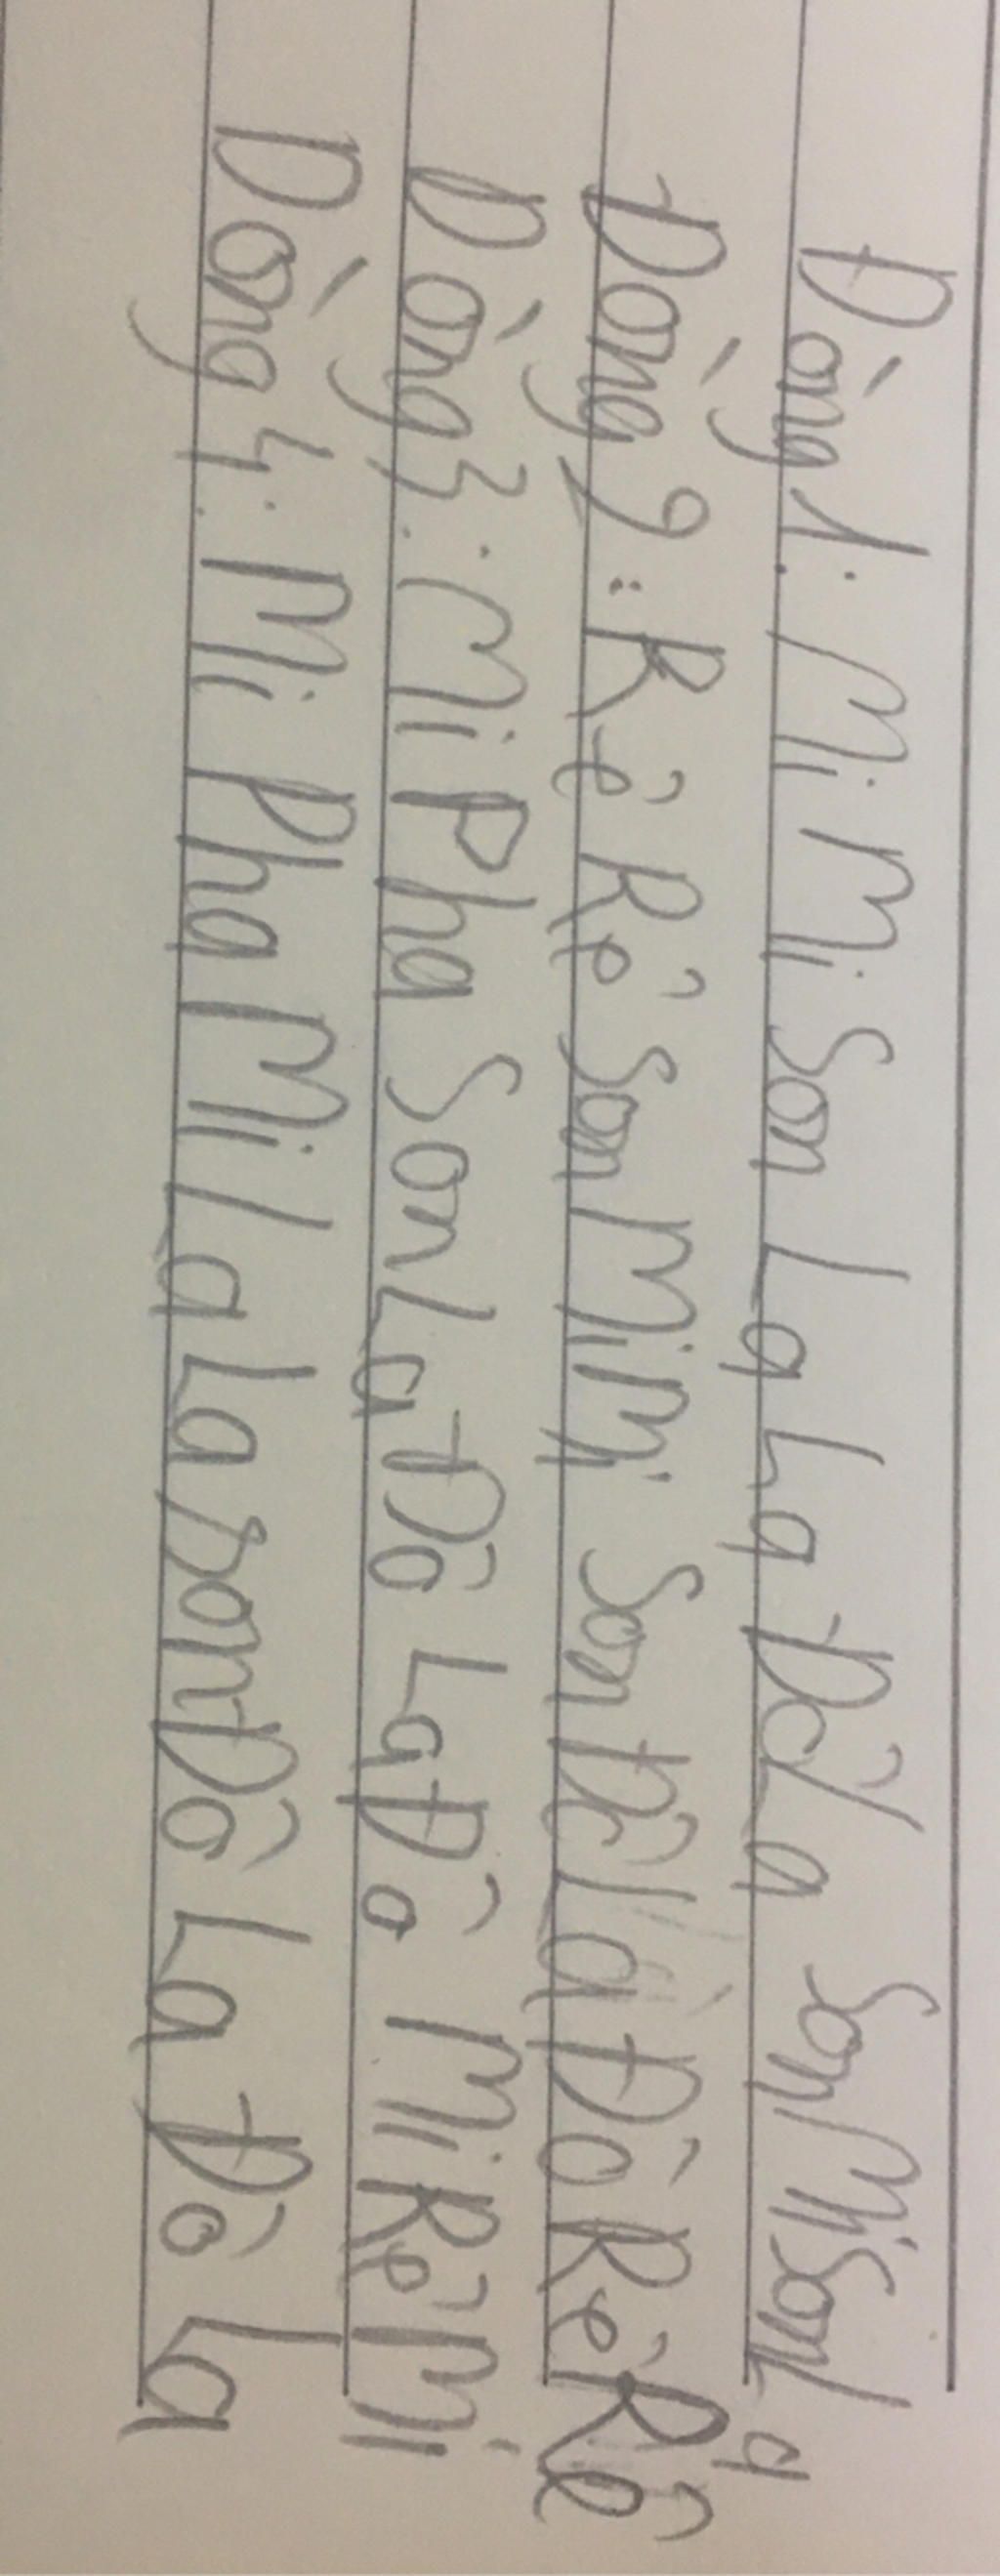 Dòng 1: Mi Mi Son La La Đố La Son Mi Son La
Dòng 2: Rê Rê Son Mi Mi Son Đố La Đô Rê Rê
Dòng 3: Mi Pha Son La Đô La Đô Mi Rê Mi
Dòng 4: Mi Pha Mi La La Son Đô La Đô La